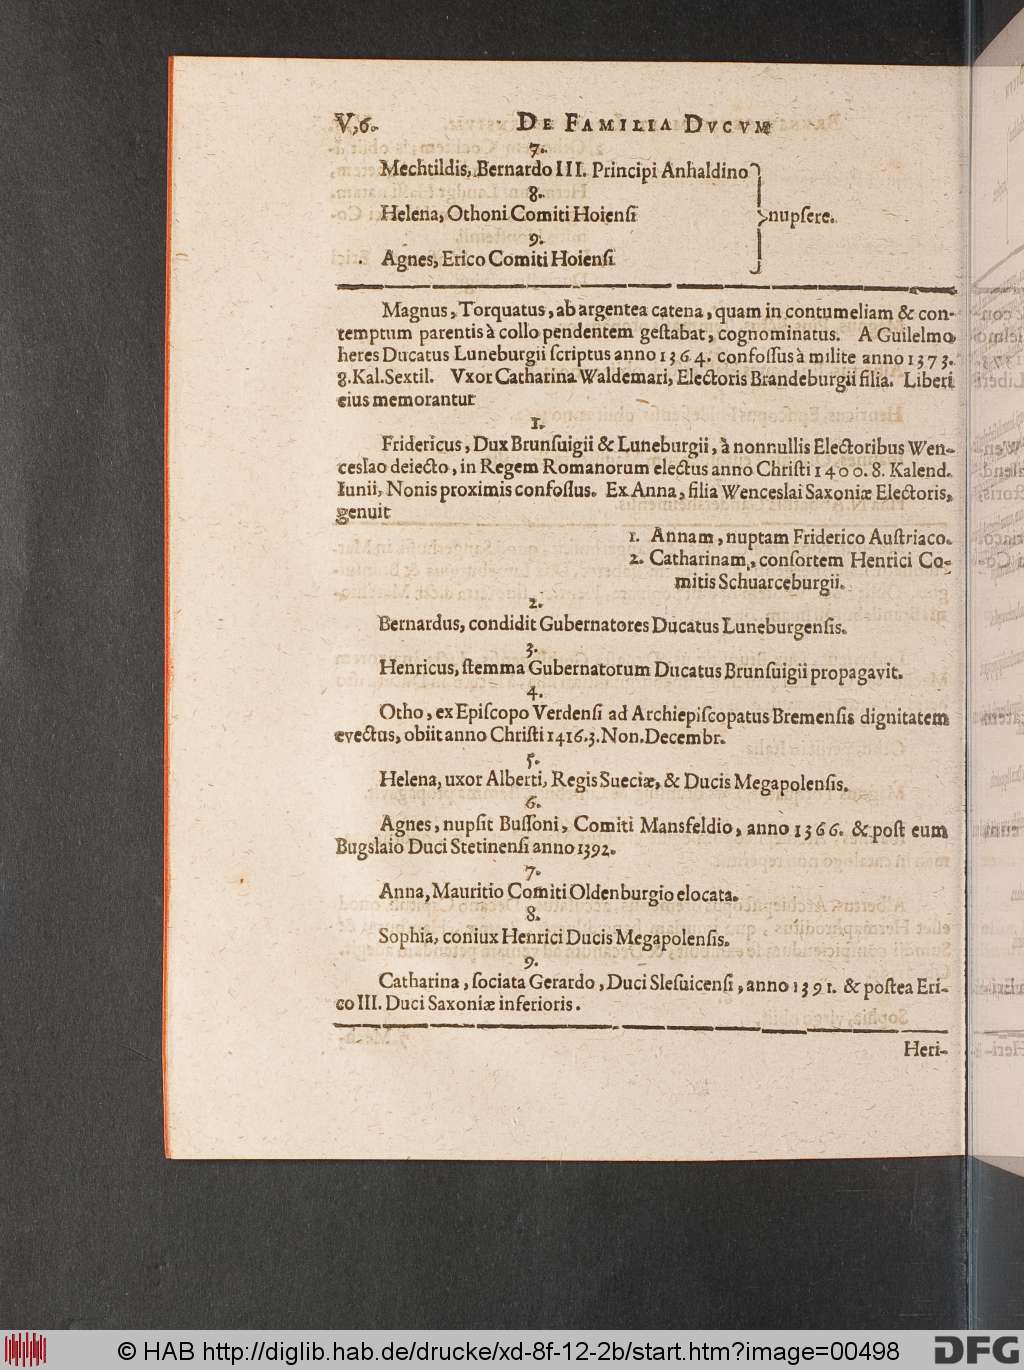 V,6. DE FAMILIA DVCVM
7.
Mechtildis, Bernardo III. Principi Anhaldino
8.
Helena, Othoni Comiti Hoienſi
nupſere.
9.
Agnes, Erico Comiti Hoienſi
Magnus, Torquatus, ab argentea catena, quam in contumeliam & con-
temptum parentis à collo pendentem geſtabat, cognominatus. A Guilelmo
heres Ducatus Luneburgii ſcriptus anno 1364. confoſſus à milite anno 1373.
8. Kal. Sextil. Vxor Catharina Waldemari, Electoris Brandeburgii filia. Liberi
eius memorantur
1.
Fridericus, Dux Brunſuigii & Luneburgii, à nonnullis Electoribus Wen-
ceslao deiecto, in Regem Romanorum electus anno Chriſti 1400. 8. Kalend.
Iunii, Nonis proximis confoſſus. Ex Anna, filia Wenceslai Saxoniæ Electoris,
genuit
1. Annam, nuptam Friderico Auſtriaco.
2. Catharinam, conſortem Henrici Co-
mitis Schuarceburgii.
2.
Bernardus, condidit Gubernatores Ducatus Luneburgenſis.
3.
Henricus, ſtemma Gubernatorum Ducatus Brunſuigii propagavit.
4.
Otho, ex Epiſcopo Verdenſi ad Archiepiſcopatus Bremenſis dignitatem
evectus, obiit anno Chriſti 1416. 3. Non. Decembr.
5.
Helena, uxor Alberti, Regis Sueciæ, & Ducis Megapolenſis.
6.
Agnes, nupſit Buſſoni, Comiti Mansfeldio, anno 1366. & poſt eum
Bugslaio Duci Stetinenſi anno 1392.
7.
Anna, Mauritio Comiti Oldenburgio elocata.
8.
Sophia, coniux Henrici Ducis Megapolenſis.
9.
Catharina, ſociata Gerardo, Duci Sleſuicenſi, anno 1391. & poſtea Eri-
co III. Duci Saxoniæ inferioris.
Heri-
© HAB http://diglib.hab.de/drucke/xd-8f-12-2b/start.htm?image=00498
DFG